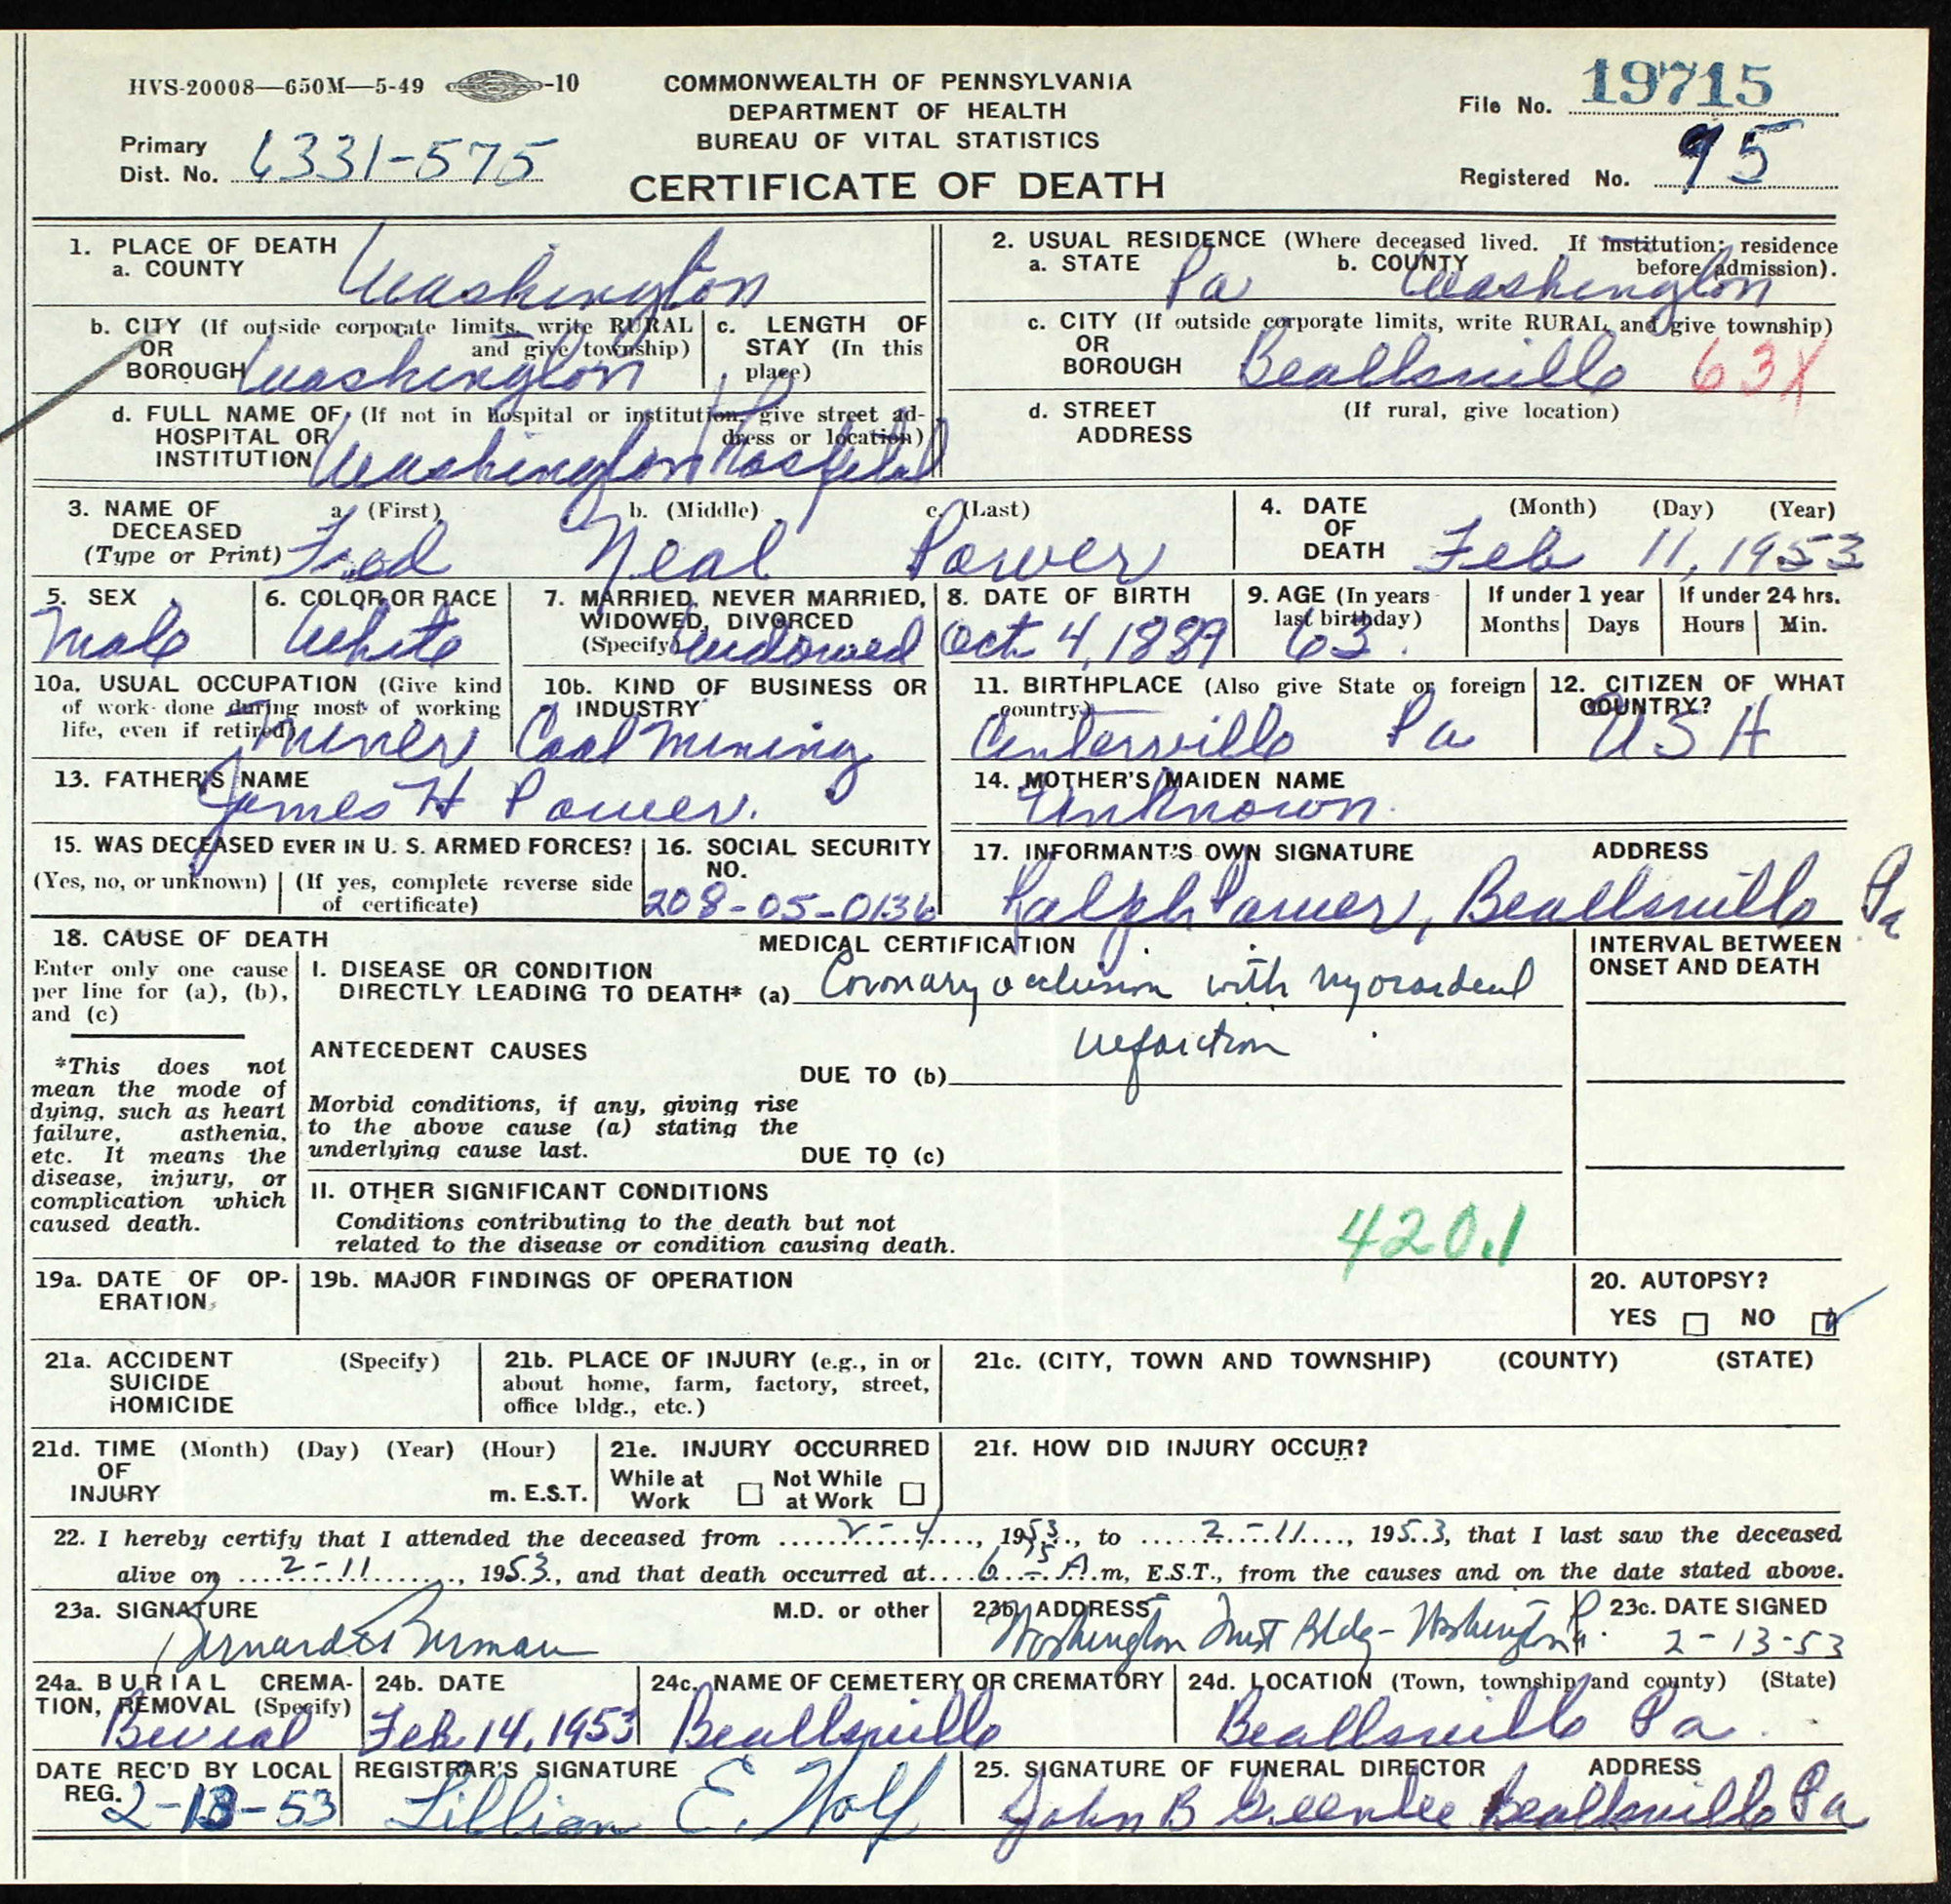 HVS-20008—650M—5-49 -10
COMMONWEALTH OF PENNSYLVANIA
DEPARTMENT OF HEALTH
BUREAU OF VITAL STATISTICS
CERTIFICATE OF DEATH
File No. 19715
Primary Dist. No. 6331-575
Registered No. 95
1. PLACE OF DEATH
a. COUNTY Washington
2. USUAL RESIDENCE (Where deceased lived. If institution: residence before admission).
a. STATE Pa b. COUNTY Washington
b. CITY (If outside corporate limits, write RURAL and give township)
OR
BOROUGH Washington
c. LENGTH OF STAY (In this place)
c. CITY (If outside corporate limits, write RURAL and give township)
OR
BOROUGH Beallsville 63X
d. FULL NAME OF (If not in hospital or institution, give street address or location)
HOSPITAL OR
INSTITUTION Washington Hospital
d. STREET ADDRESS (If rural, give location)
3. NAME OF DECEASED (Type or Print)
a. (First) b. (Middle) c. (Last)
Fred Neal Power
4. DATE OF DEATH (Month) (Day) (Year)
Feb 11, 1953
5. SEX
Male
6. COLOR OR RACE
White
7. MARRIED, NEVER MARRIED, WIDOWED, DIVORCED (Specify)
Widowed
8. DATE OF BIRTH
Oct 4, 1889
9. AGE (In years last birthday)
63.
If under 1 year
Months Days
If under 24 hrs.
Hours Min.
10a. USUAL OCCUPATION (Give kind of work done during most of working life, even if retired)
Miner
10b. KIND OF BUSINESS OR INDUSTRY
Coal Mining
11. BIRTHPLACE (Also give State or foreign country)
Centerville Pa
12. CITIZEN OF WHAT COUNTRY?
USA
13. FATHER'S NAME
James H Power.
14. MOTHER'S MAIDEN NAME
Unknown.
15. WAS DECEASED EVER IN U. S. ARMED FORCES?
(Yes, no, or unknown) (If yes, complete reverse side of certificate)
16. SOCIAL SECURITY NO.
208-05-0136
17. INFORMANT'S OWN SIGNATURE ADDRESS
Ralph Power, Beallsville Pa
18. CAUSE OF DEATH
Enter only one cause per line for (a), (b), and (c)
*This does not mean the mode of dying, such as heart failure, asthenia, etc. It means the disease, injury, or complication which caused death.
MEDICAL CERTIFICATION
I. DISEASE OR CONDITION
DIRECTLY LEADING TO DEATH* (a) Coronary occlusion with myocardial
infarction
ANTECEDENT CAUSES
DUE TO (b)
Morbid conditions, if any, giving rise
to the above cause (a) stating the
underlying cause last.
DUE TO (c)
II. OTHER SIGNIFICANT CONDITIONS
Conditions contributing to the death but not
related to the disease or condition causing death.
420.1
INTERVAL BETWEEN
ONSET AND DEATH
19a. DATE OF OPERATION
19b. MAJOR FINDINGS OF OPERATION
20. AUTOPSY?
YES NO
21a. ACCIDENT SUICIDE HOMICIDE (Specify)
21b. PLACE OF INJURY (e.g., in or about home, farm, factory, street, office bldg., etc.)
21c. (CITY, TOWN AND TOWNSHIP) (COUNTY) (STATE)
21d. TIME OF INJURY (Month) (Day) (Year) (Hour)
m. E.S.T.
21e. INJURY OCCURRED
While at Work Not While at Work
21f. HOW DID INJURY OCCUR?
22. I hereby certify that I attended the deceased from 2-4, 1953, to 2-11, 1953, that I last saw the deceased
alive on 2-11, 1953, and that death occurred at 6 15 A.m, E.S.T., from the causes and on the date stated above.
23a. SIGNATURE M.D. or other
Bernard Berman
23b. ADDRESS
Washington Trust Bldg - Washington Pa.
23c. DATE SIGNED
2-13-53
24a. BURIAL CREMATION, REMOVAL (Specify)
Burial
24b. DATE
Feb 14, 1953
24c. NAME OF CEMETERY OR CREMATORY
Beallsville
24d. LOCATION (Town, township and county) (State)
Beallsville Pa.
DATE REC'D BY LOCAL REG.
2-13-53
REGISTRAR'S SIGNATURE
Lillian E. Wolf
25. SIGNATURE OF FUNERAL DIRECTOR ADDRESS
John B Greenlee Beallsville Pa